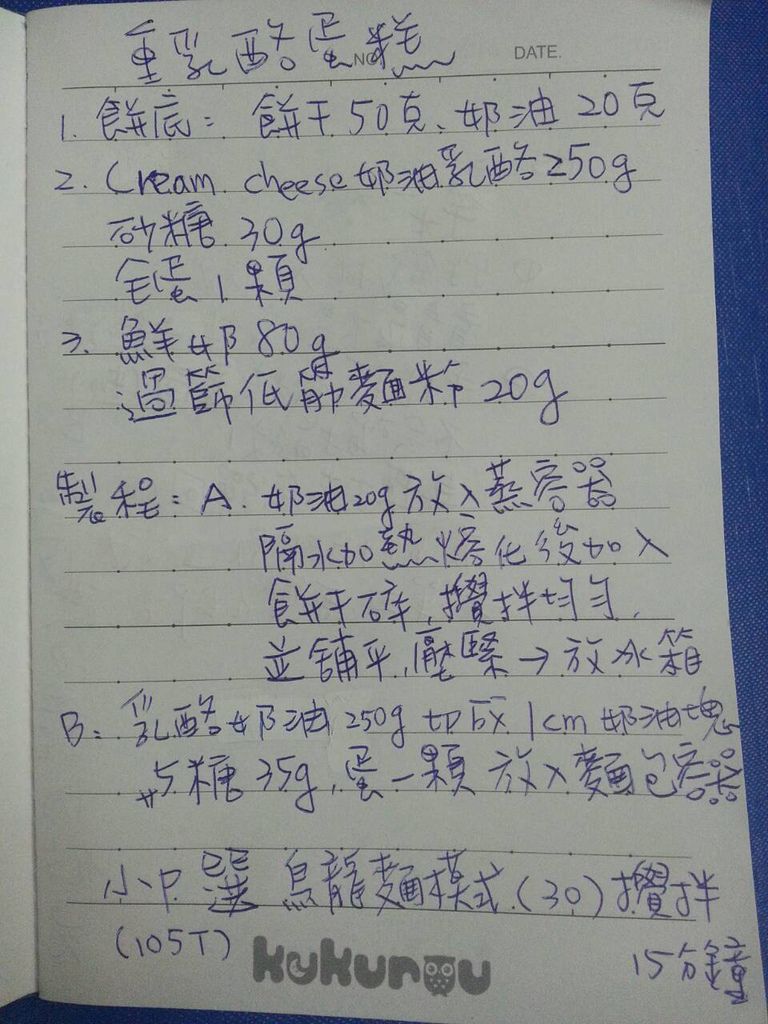 重乳酪蛋糕
NO. DATE.
1. 餅底: 餅干50克、奶油20克
2. Cream cheese奶油乳酪250g
砂糖 30g
全蛋1顆
3. 鮮奶80g
過篩低筋麵粉20g
製程: A. 奶油20g放入蒸容器
隔水加熱熔化後加入
餅干碎,攪拌均勻,
並舖平,壓緊→放冰箱
B: 乳酪奶油250g切成1cm奶油塊
+糖35g,蛋一顆 放入麵包容器
小P 選 烏龍麵模式(30)攪拌
(105T) 15分鐘
kukurou